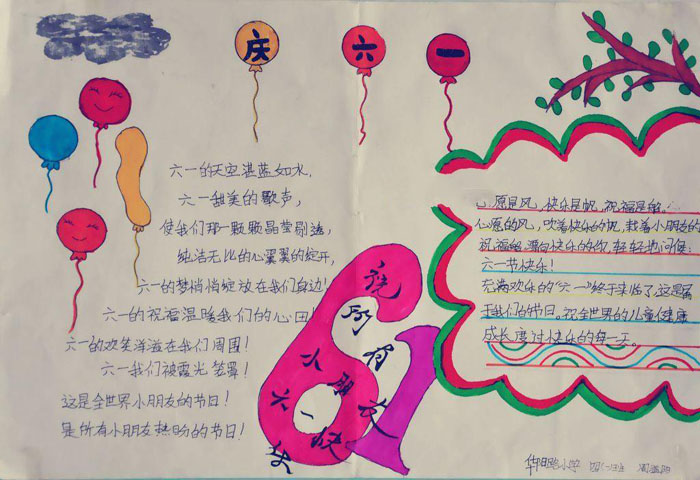 庆六一
六一的天空湛蓝如水,
六一甜美的歌声,
使我们那一颗颗晶莹剔透,
纯洁无比的心翼翼的绽开,
六一的梦悄悄绽放在我们身边!
六一的祝福温暖我们的心田!
六一的欢笑洋溢在我们周围!
六一我们被霞光笼罩!
这是全世界小朋友的节日!
是所有小朋友热盼的节日!
祝所有
小朋友
六一快
61
心愿是风,快乐是帆,祝福是船。
心愿的风,吹着快乐的帆,载着小朋友的
祝福船,漂向快乐的你,轻轻地问候:
六一节快乐!
充满欢乐的“六一”终于来临了,这是属
于我们的节日。祝全世界的儿童健康
成长,度过快乐的每一天。
小学 四(一)班